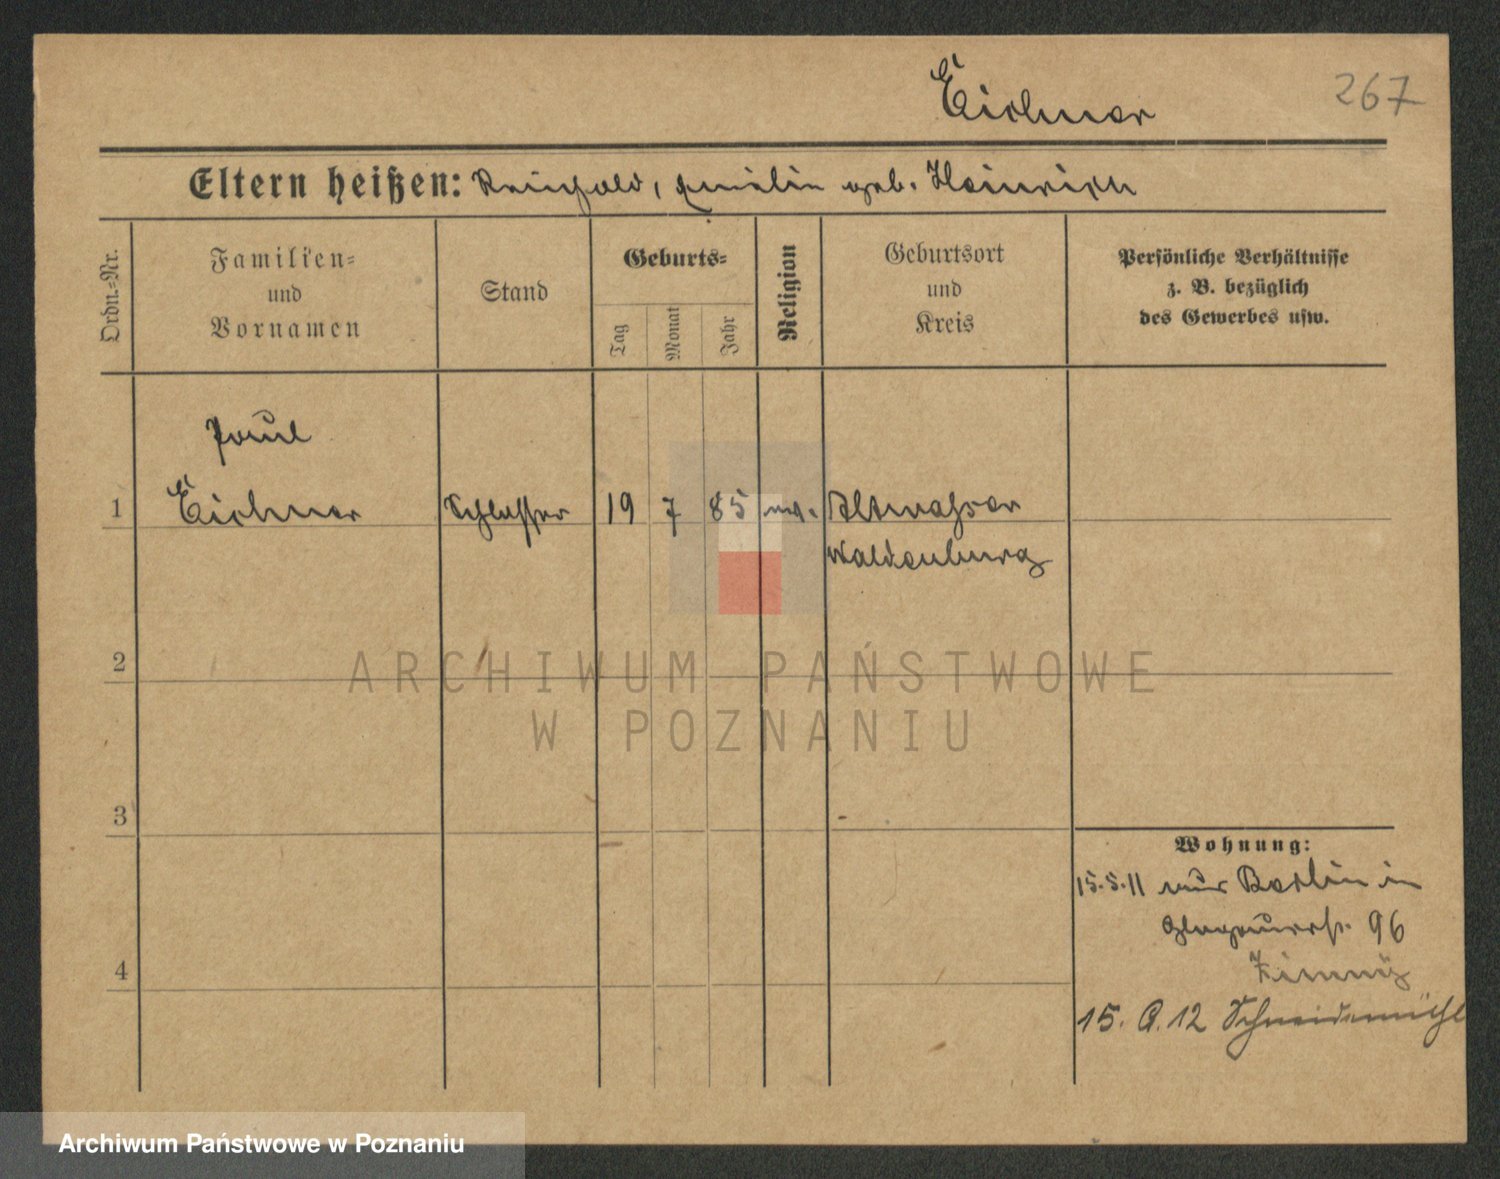 Eichner
267
Eltern heißen: Reinhold, Emilie geb. Heinrich
Ordn.=Nr.
Familien=
und
Vornamen
Stand
Geburts=
Tag
Monat
Jahr
Religion
Geburtsort
und
Kreis
Persönliche Verhältnisse
z. B. bezüglich
des Gewerbes usw.
Paul
1 Eichner Schlosser 19 7 85 ev. Altwasser
Waldenburg
2
ARCHIWUM PAŃSTWOWE
W POZNANIU
3
Wohnung:
15.5.11 aus Berlin in
Glogauerstr. 96
4
15. 12 Schneidemühl
Archiwum Państwowe w Poznaniu